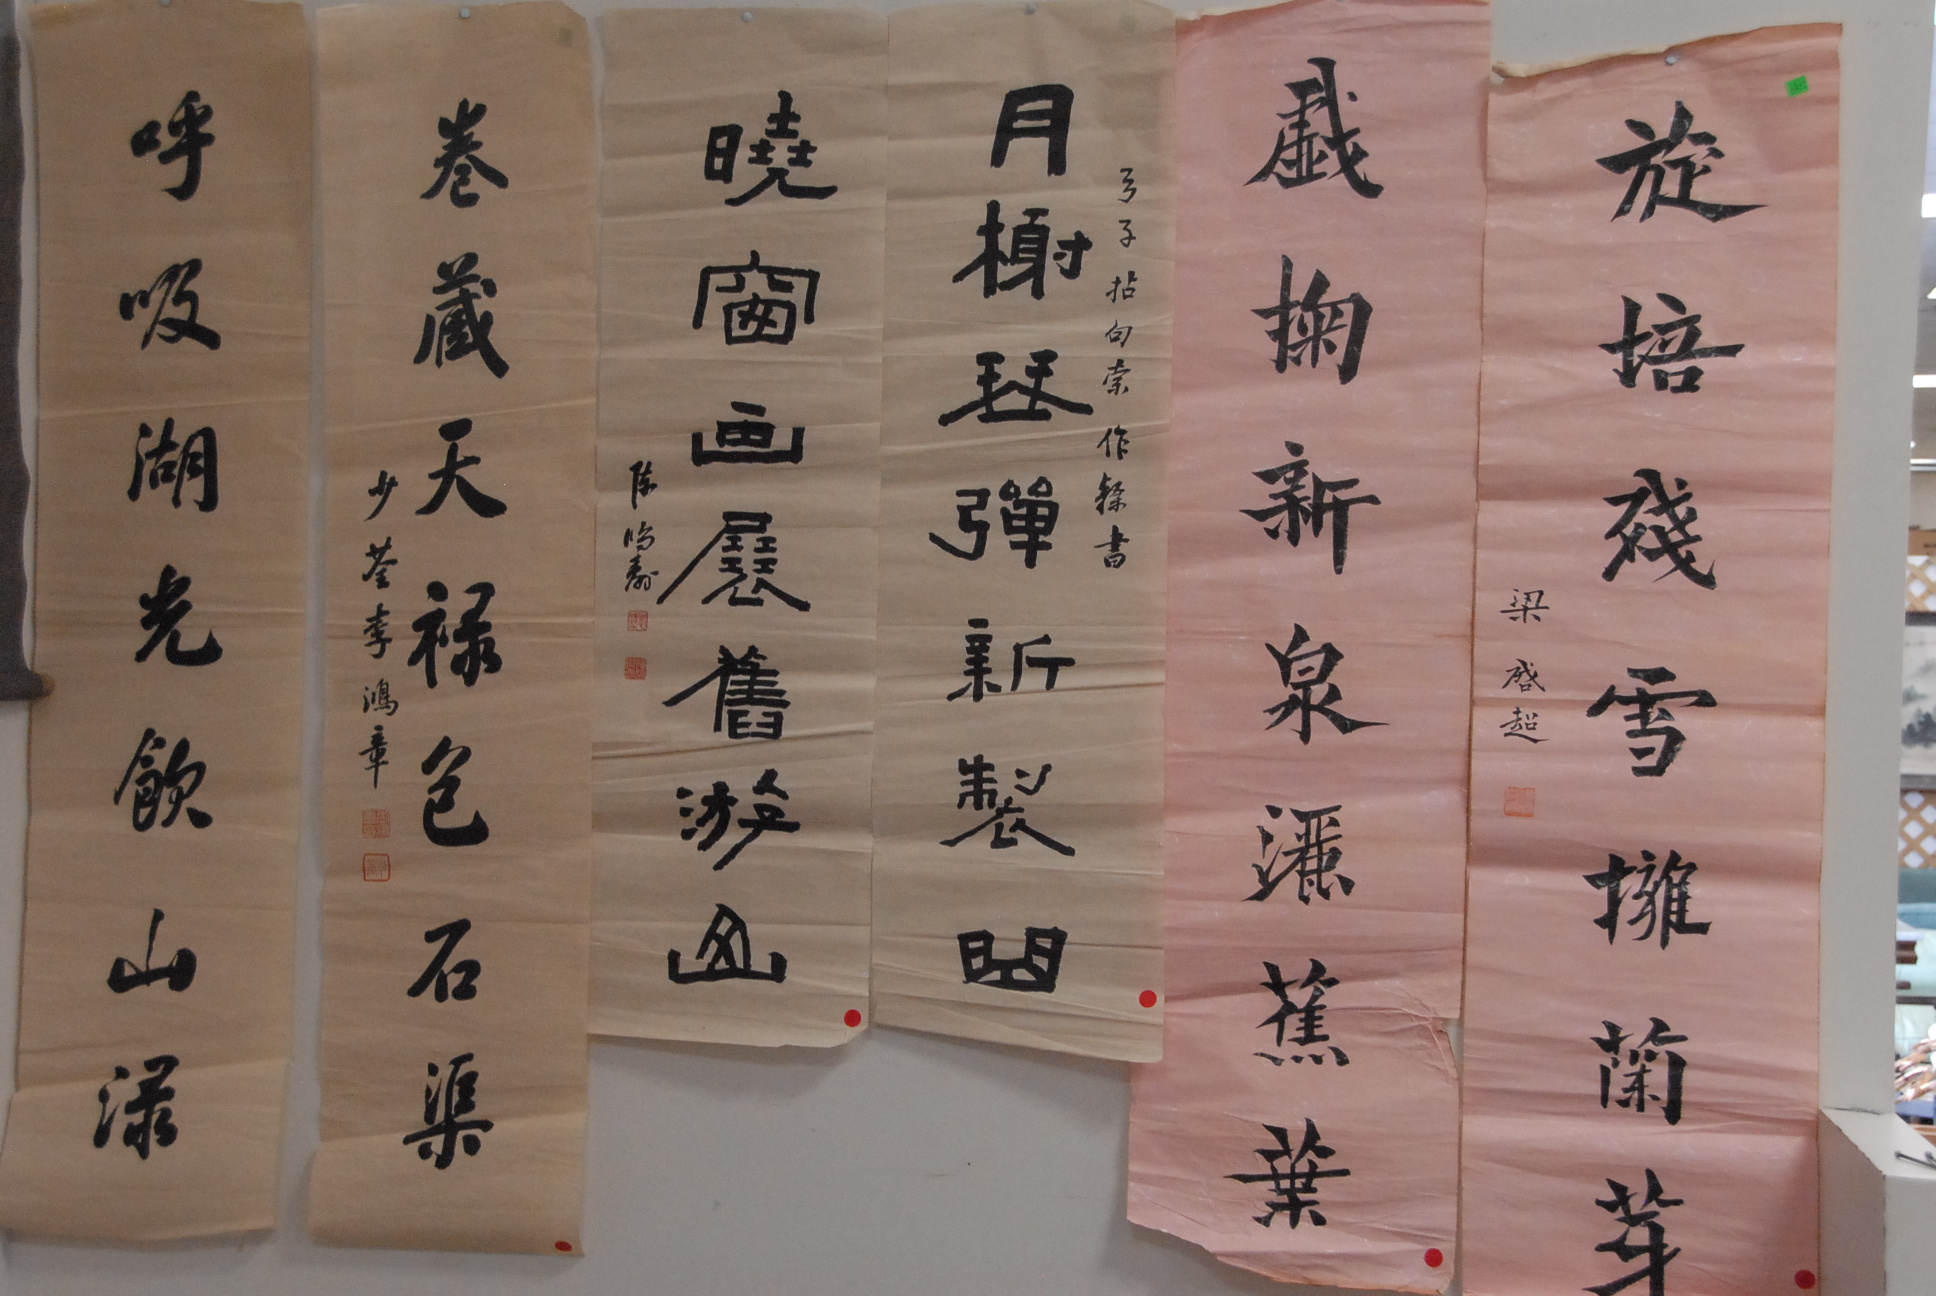 旋培殘雪擁蘭芽
梁啟超
戲掬新泉灑蕉葉
弓子拈句索作錄書
月榭琴彈新製曲
曉窗畫展舊游山
陳鴻壽
卷藏天祿包石渠
少荃李鴻章
呼吸湖光飲山渌